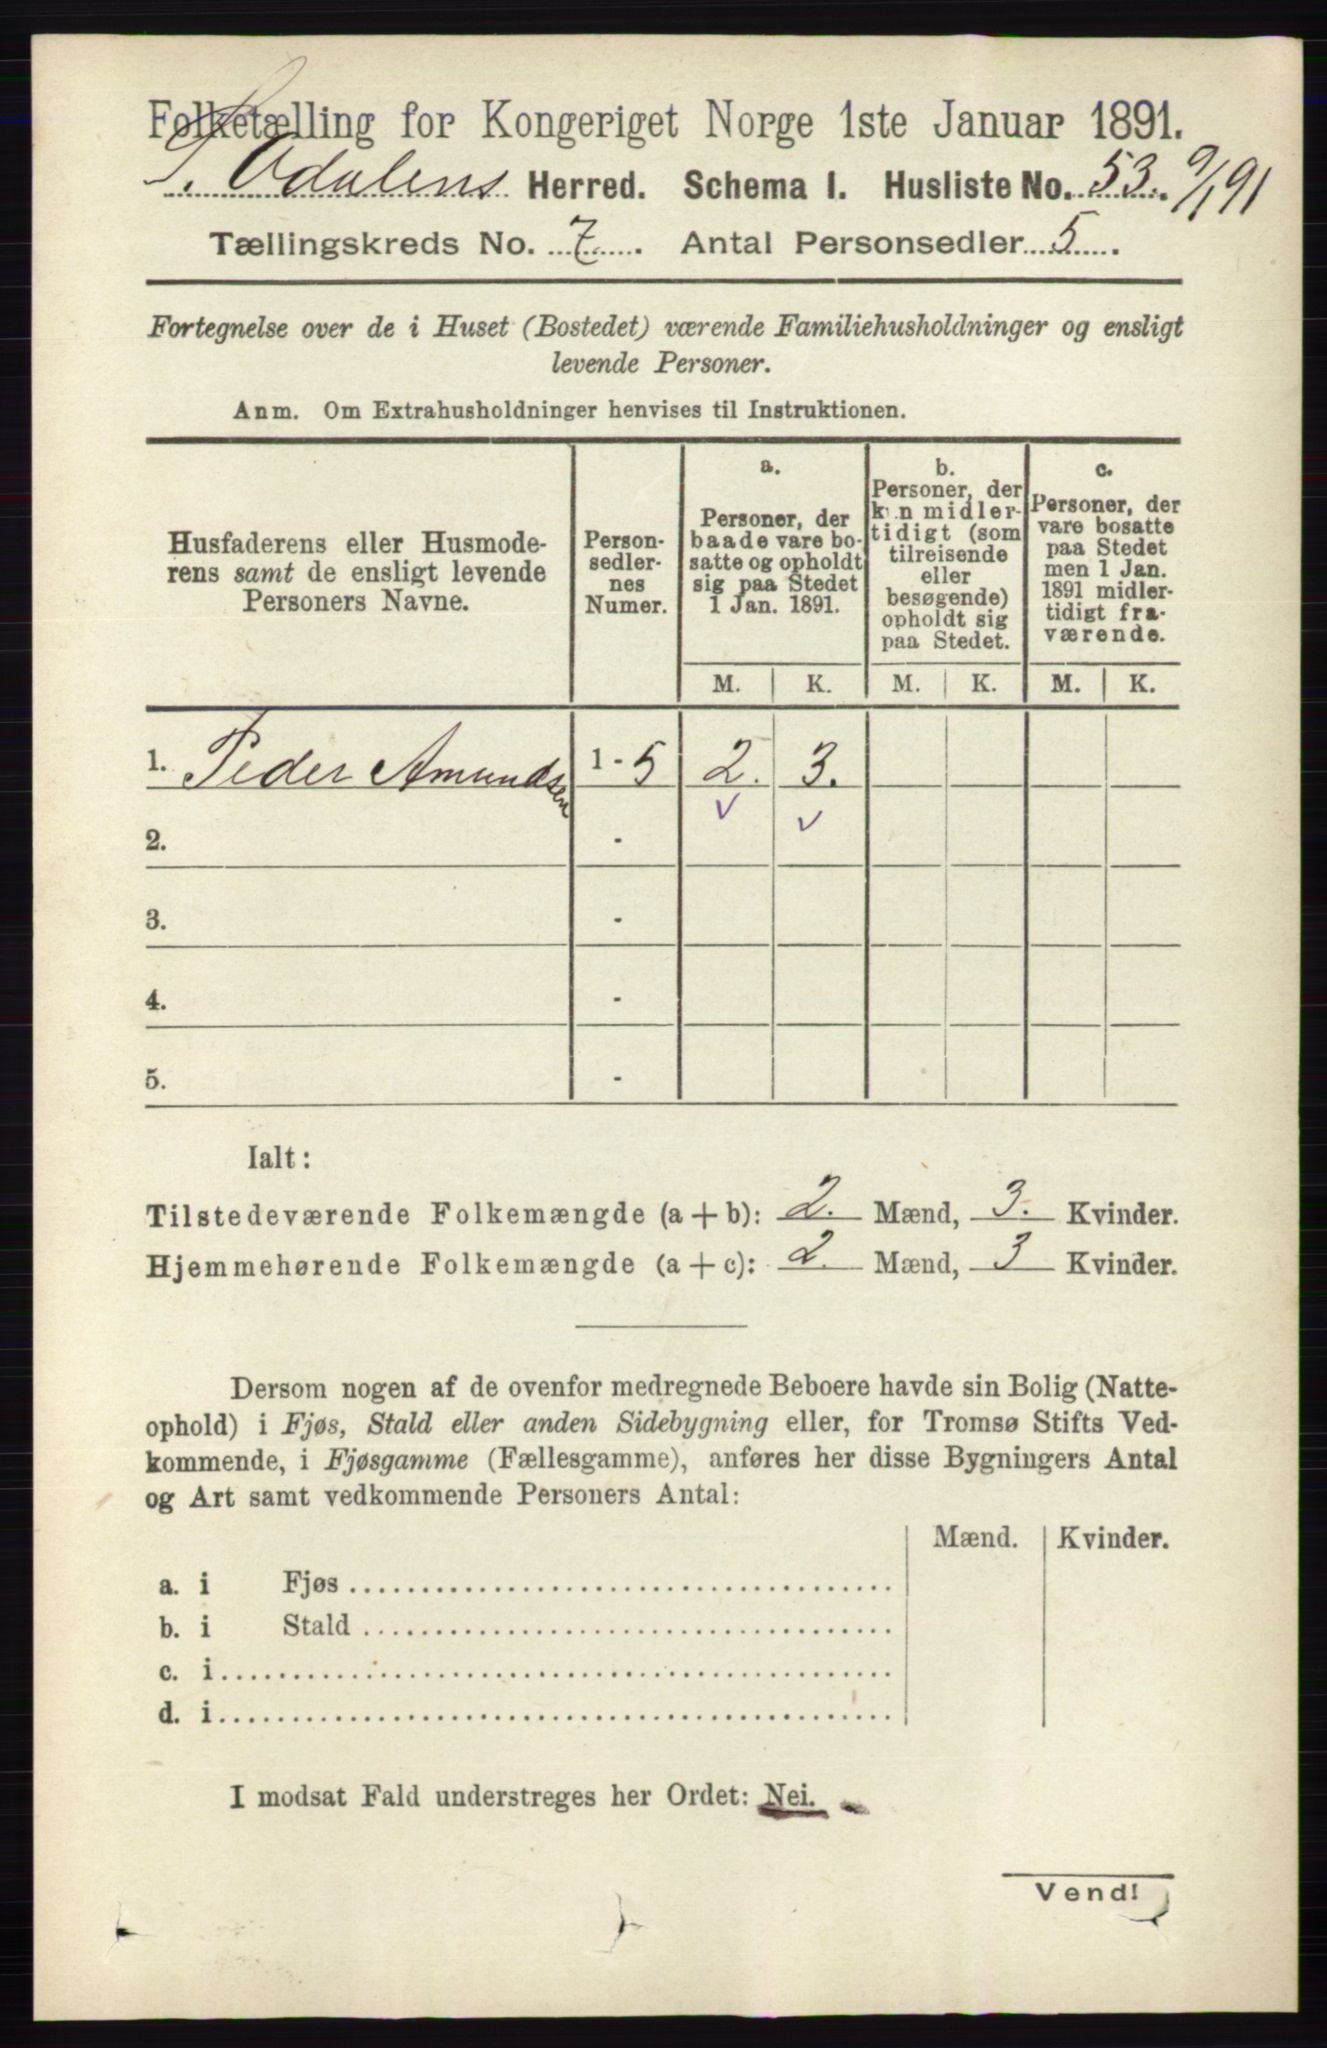 Folketælling for Kongeriget Norge 1ste Januar 1891.
S. Odalens Herred. Schema I. Husliste No. 53. 9/1 91
Tællingskreds No. 7. Antal Personsedler 5.
Fortegnelse over de i Huset (Bostedet) værende Familiehusholdninger og ensligt
levende Personer.
Anm. Om Extrahusholdninger henvises til Instruktionen.
Husfaderens eller Husmode-
rens samt de ensligt levende
Personers Navne.
Person-
sedler-
nes
Numer.
a.
Personer, der
baade vare bo-
satte og opholdt
sig paa Stedet
1 Jan. 1891.
b.
Personer, der
kun midler-
tidigt (som
tilreisende
eller
besøgende)
opholdt sig
paa Stedet.
c.
Personer, der
vare bosatte
paa Stedet
men 1 Jan.
1891 midler-
tidigt fra-
værende.
M. K. M. K. M. K.
1. Peder Amundsen 1 - 5 2. 3.
2. -
3. -
4. -
5. -
Ialt:
Tilstedeværende Folkemængde (a + b): 2. Mænd, 3. Kvinder.
Hjemmehørende Folkemængde (a + c): 2. Mænd, 3 Kvinder.
Dersom nogen af de ovenfor medregnede Beboere havde sin Bolig (Natte-
ophold) i Fjøs, Stald eller anden Sidebygning eller, for Tromsø Stifts Ved-
kommende, i Fjøsgamme (Fællesgamme), anføres her disse Bygningers Antal
og Art samt vedkommende Personers Antal:
Mænd. Kvinder.
a. i Fjøs
b. i Stald
c. i
d. i
I modsat Fald understreges her Ordet: Nei.
Vend!